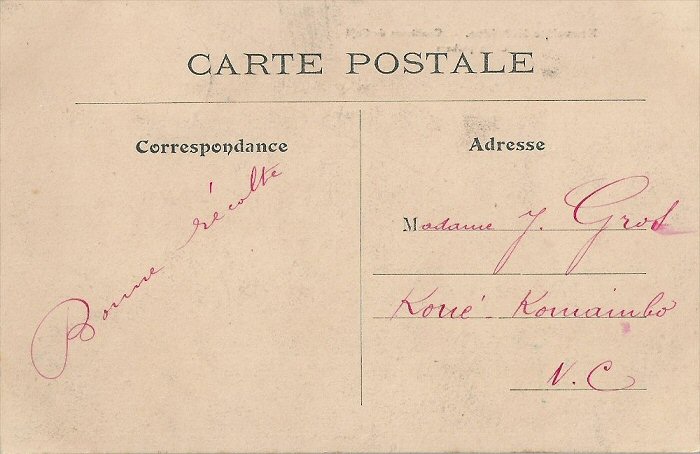 CARTE POSTALE
Correspondance
Bonne récolte
Adresse
Madame J. Grot
Koné-Komaimbo
N.C